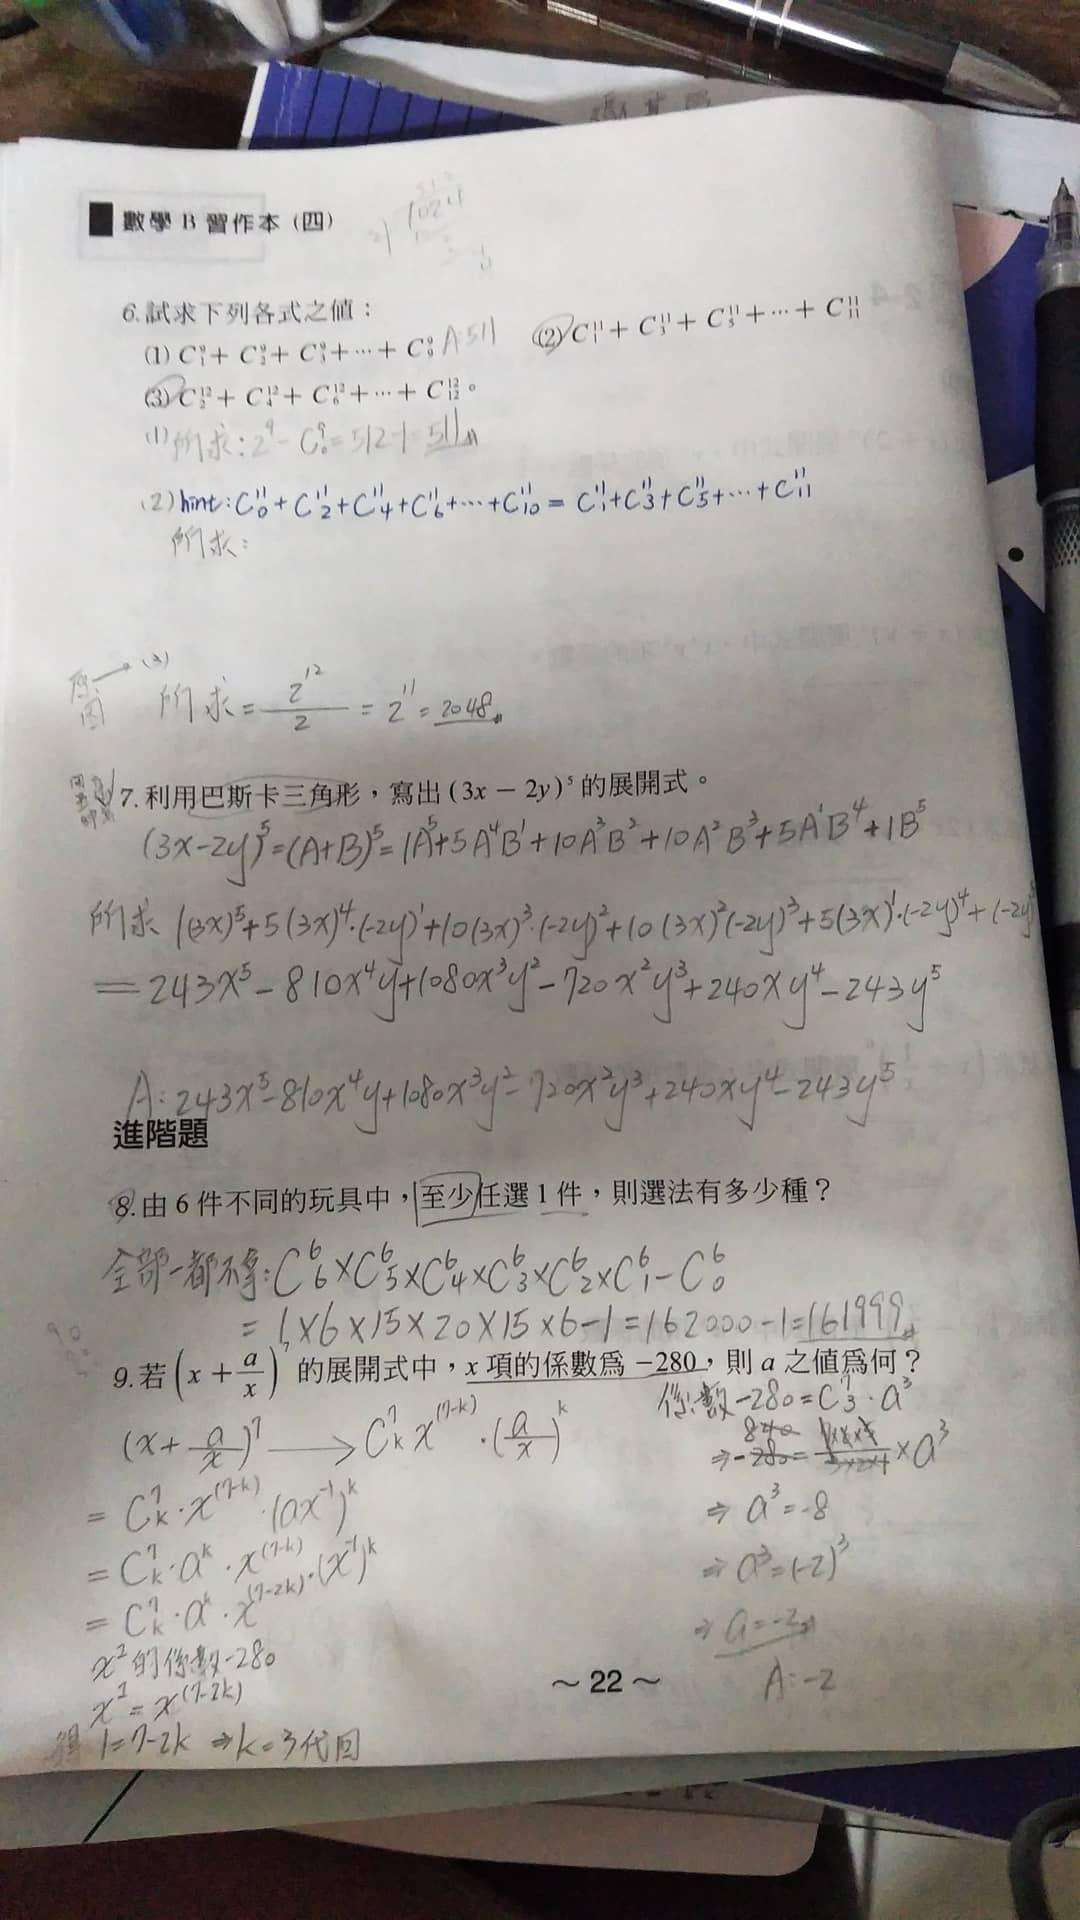 數學 B 習作本 (四)
6.試求下列各式之值：
(1) C⁹₁ + C⁹₂ + C⁹₃ + ⋯ + C⁹₉ A:511 (2) C¹¹₁ + C¹¹₃ + C¹¹₅ + ⋯ + C¹¹₁₁
(3) C¹²₂ + C¹²₄ + C¹²₆ + ⋯ + C¹²₁₂。
(1) 所求: 2⁹ - C⁹₀ = 512-1 = 511
(2) hint: C¹¹₀ + C¹¹₂ + C¹¹₄ + C¹¹₆ + ⋯ + C¹¹₁₀ = C¹¹₁ + C¹¹₃ + C¹¹₅ + ⋯ + C¹¹₁₁
所求:
原因 → (3)
所求 = 2¹²/2 = 2¹¹ = 2048
7.利用巴斯卡三角形，寫出 (3x − 2y)⁵ 的展開式。
(3x-2y)⁵ = (A+B)⁵ = 1A⁵+5A⁴B¹+10A³B²+10A²B³+5A¹B⁴+1B⁵
所求 1(3x)⁵+5(3x)⁴·(-2y)¹+10(3x)³·(-2y)²+10(3x)²(-2y)³+5(3x)¹·(-2y)⁴+(-2y)⁵
= 243x⁵-810x⁴y+1080x³y²-720x²y³+240xy⁴-243y⁵
A: 243x⁵-810x⁴y+1080x³y²-720x²y³+240xy⁴-243y⁵
進階題
8.由 6 件不同的玩具中，至少任選 1 件，則選法有多少種？
全部-都不拿: C⁶₆×C⁶₅×C⁶₄×C⁶₃×C⁶₂×C⁶₁-C⁶₀
= 1×6×15×20×15×6-1=162000-1=161999
9.若 (x + a/x)⁷ 的展開式中，x 項的係數為 −280，則 a 之值為何？
(x+a/x)⁷ → C⁷ₖ x⁽⁷⁻ᵏ⁾·(a/x)ᵏ
= C⁷ₖ·x⁽⁷⁻ᵏ⁾·(ax⁻¹)ᵏ
= C⁷ₖ·aᵏ·x⁽⁷⁻ᵏ⁾·(x⁻¹)ᵏ
= C⁷ₖ·aᵏ·x⁽⁷⁻²ᵏ⁾
x² 的係數-280
x¹ = x⁽⁷⁻²ᵏ⁾
得 1=7-2k ⇒ k=3代回
係數-280=C⁷₃·a³
⇒ a³=-8
⇒ a³=(-2)³
⇒ a=-2
A:-2
～ 22 ～